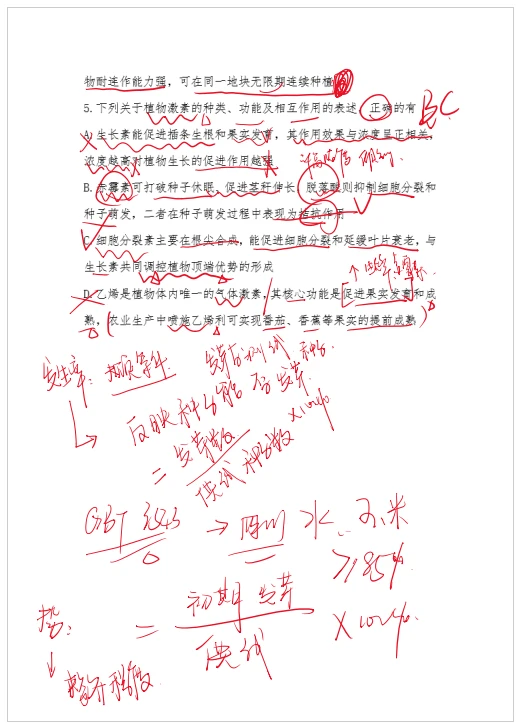 物耐连作能力强，可在同一地块无限期连续种植
5.下列关于植物激素的种类、功能及相互作用的表述，正确的有
BC
A.生长素能促进插条生根和果实发育，其作用效果与浓度呈正相关，
浓度越高对植物生长的促进作用越强
B.赤霉素可打破种子休眠，促进茎秆伸长，脱落酸则抑制细胞分裂和
种子萌发，二者在种子萌发过程中表现为拮抗作用
C.细胞分裂素主要在根尖合成，能促进细胞分裂和延缓叶片衰老，与
生长素共同调控植物顶端优势的形成
D.乙烯是植物体内唯一的气体激素，其核心功能是促进果实发育和成
熟，农业生产中喷施乙烯利可实现番茄、香蕉等果实的提前成熟
发芽率：
发芽 种子
反映种子能否发芽
= 发芽数
供试种子数
×100%
GBT 3543
→
水 玉米
≥85%
势：
= 初期发芽
供试
×100%